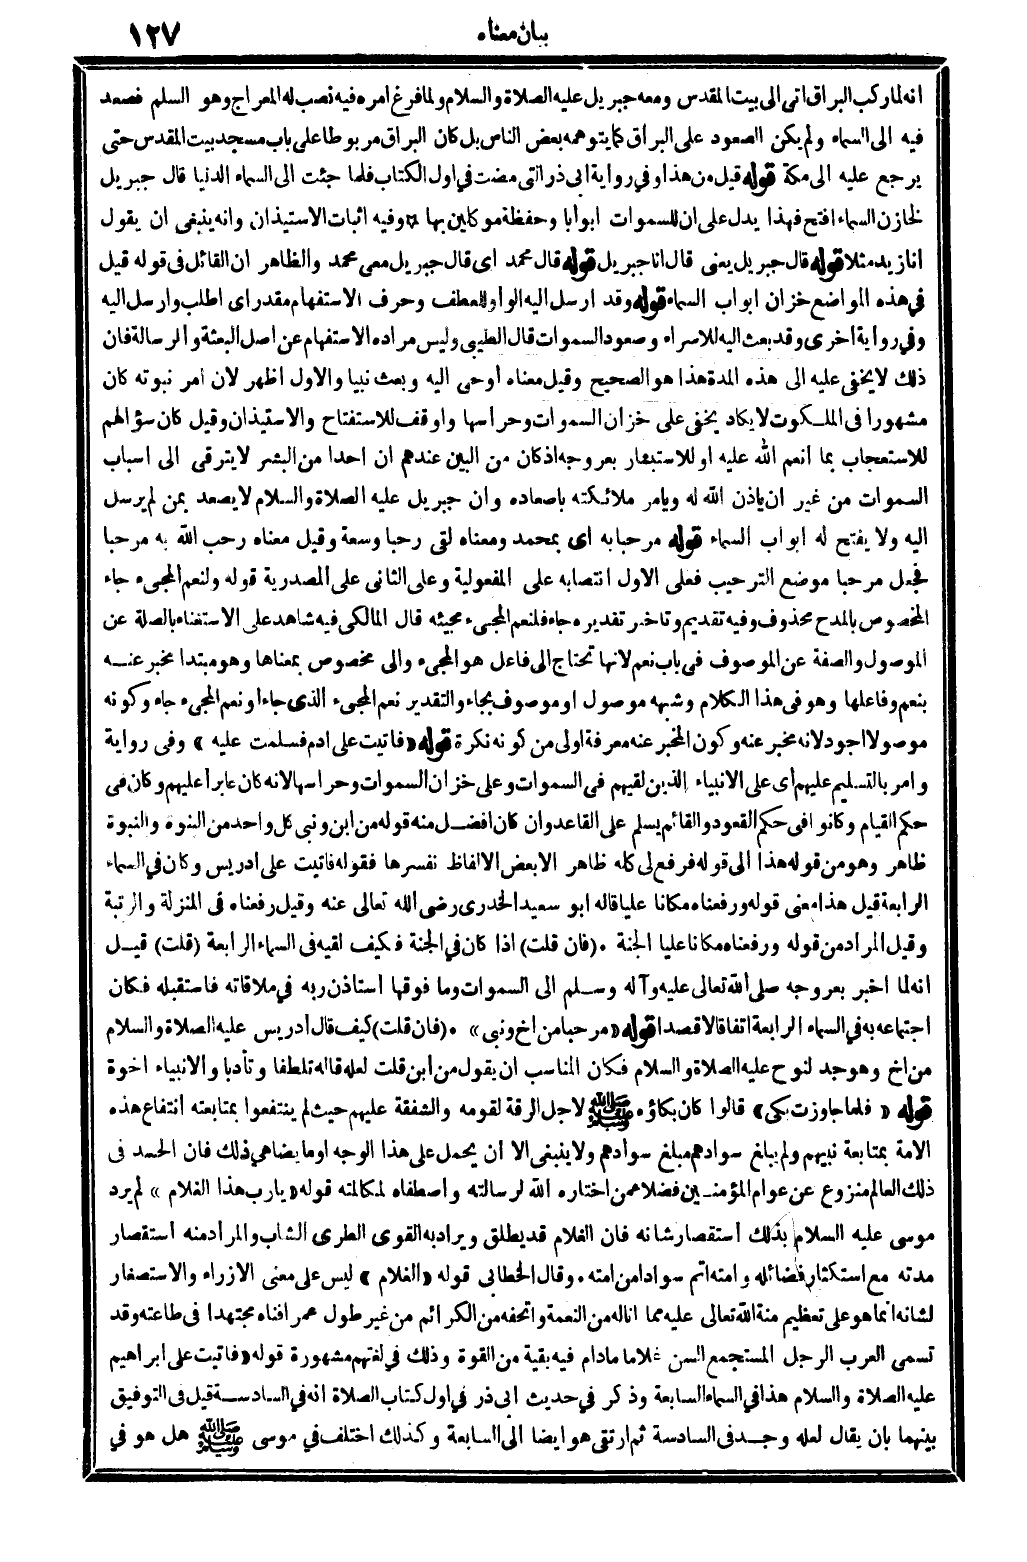 بيان معناه ١٢٧
انه لما ركب البراق اتى الى بيت المقدس ومعه جبريل عليه الصلاة والسلام ولما فرغ امره فيه نصب له المعراج وهو السلم فصعد
فيه الى السماء ولم يكن الصعود على البراق كما يتوهمه بعض الناس بل كان البراق مربوطا على باب مسجد بيت المقدس حتى
يرجع عليه الى مكة قوله قيل من هذا وفي رواية ابى ذر التى مضت في اول الكتاب فلما جئت الى السماء الدنيا قال جبريل
لخازن السماء افتح فهذا يدل على ان للسموات ابوابا وحفظة موكلين بها * وفيه اثبات الاستيذان وانه ينبغى ان يقول
انا زيد مثلا قوله قال جبريل يعنى قال انا جبريل قوله قال محمد اى قال جبريل معى محمد والظاهر ان القائل فى قوله قيل
في هذه المواضع خزان ابواب السماء قوله وقد ارسل اليه الواو للعطف وحرف الاستفهام مقدر اى اطلب وارسل اليه
وفي رواية اخرى وقد بعث اليه للاسراء وصعود السموات قال الطيبى وليس مراده الاستفهام عن اصل البعثة والرسالة فان
ذلك لا يخفى عليه الى هذه المدة هذا هو الصحيح وقيل معناه أوحى اليه وبعث نبيا والاول اظهر لان امر نبوته كان
مشهورا فى الملكوت لا يكاد يخفى على خزان السموات وحراسها واوقف للاستفتاح والاستيذان وقيل كان سؤالهم
للاستعجاب بما أنعم الله عليه او للاستبشار بعروجه اذ كان من البين عندهم ان احدا من البشر لا يترقى الى اسباب
السموات من غير ان ياذن الله له ويامر ملائكته باصعاده وان جبريل عليه الصلاة والسلام لا يصعد بمن لم يرسل
اليه ولا يفتح له ابواب السماء قوله مرحبا به اى بمحمد ومعناه لقى رحبا وسعة وقيل معناه رحب الله به مرحبا
فجعل مرحبا موضع الترحيب فعلى الاول انتصابه على المفعولية وعلى الثانى على المصدرية قوله ولنعم المجىء جاء
المخصوص بالمدح محذوف وفيه تقديم وتاخير تقديره جاء فلنعم المجىء مجيئه قال المالكى فيه شاهد على الاستغناء بالصلة عن
الموصول والصفة عن الموصوف فى باب نعم لانها تحتاج الى فاعل هو المجىء والى مخصوص بمعناها وهو مبتدا مخبر عنه
بنعم وفاعلها وهو فى هذا الكلام وشبهه موصول او موصوف بجاء والتقدير نعم المجىء الذى جاء او نعم المجىء جاء وكونه
موصولا اجود لانه مخبر عنه وكون المخبر عنه معرفة اولى من كونه نكرة قوله «فاتيت على ادم فسلمت عليه» وفى رواية
وامر بالتسليم عليهم أى على الانبياء الذين لقيهم فى السموات وعلى خزان السموات وحراسها لانه كان عابرا عليهم وكان فى
حكم القيام وكانوا فى حكم القعود والقائم يسلم على القاعد وان كان افضل منه قوله من ابن ونبى كل واحد من البنوة والنبوة
ظاهر وهو من قوله هذا الى قوله فرفع لى كله ظاهر الا بعض الالفاظ نفسرها فقوله فاتيت على ادريس وكان في السماء
الرابعة قيل هذا معنى قوله ورفعناه مكانا عليا قاله ابو سعيد الخدرى رضى الله تعالى عنه وقيل رفعناه فى المنزلة والرتبة
وقيل المراد من قوله ورفعناه مكانا عليا الجنة ٠ (فان قلت) اذا كان في الجنة فكيف لقيه فى السماء الرابعة (قلت) قيل
انه لما اخبر بعروجه صلى الله تعالى عليه وآله وسلم الى السموات وما فوقها أستاذن ربه في ملاقاته فاستقبله فكان
اجتماعه به في السماء الرابعة اتفاقا لا قصدا قوله «مرحبا من اخ ونبى» ٠ (فان قلت) كيف قال أدريس عليه الصلاة والسلام
من اخ وهو جد لنوح عليه الصلاة والسلام فكان المناسب ان يقول من ابن قلت لعله قاله تلطفا وتأدبا والانبياء اخوة
قوله «فلما جاوزت بكى» قالوا كان بكاؤه ﷺ لاجل الرقة لقومه والشفقة عليهم حيث لم ينتفعوا بمتابعته انتفاع هذه
الامة بمتابعة نبيهم ولم يبلغ سوادهم مبلغ سوادهم ولا ينبغى الا ان يحمل على هذا الوجه او ما يضاهي ذلك فان الحسد فى
ذلك العالم منزوع عن عوام المؤمنين فضلا عمن اختاره الله لرسالته واصطفاه لمكالمته قوله «يارب هذا الغلام» لم يرد
موسى عليه السلام بذلك أستقصار شانه فان الغلام قد يطلق ويراد به القوى الطرى الشاب والمراد منه أستقصار
مدته مع استكثار فضائله وامته اتم سوادا من امته ٠ وقال الخطابى قوله «الغلام» ليس على معنى الازراء والاستصغار
لشانه انما هو على تعظيم منة الله تعالى عليه مما اناله من النعمة واتحفه من الكرائم من غير طول عمر افناه مجتهدا فى طاعته وقد
تسمى العرب الرجل المستجمع السن غلاما مادام فيه بقية من القوة وذلك في لغتهم مشهورة قوله «فاتيت على ابراهيم
عليه الصلاة والسلام هذا في السماء السابعة وذكر في حديث ابى ذر في اول كتاب الصلاة انه في السادسة قيل فى التوفيق
بينهما بان يقال لعله وجد فى السادسة ثم ارتقى هو ايضا الى السابعة وكذلك اختلف في موسى ﷺ هل هو في